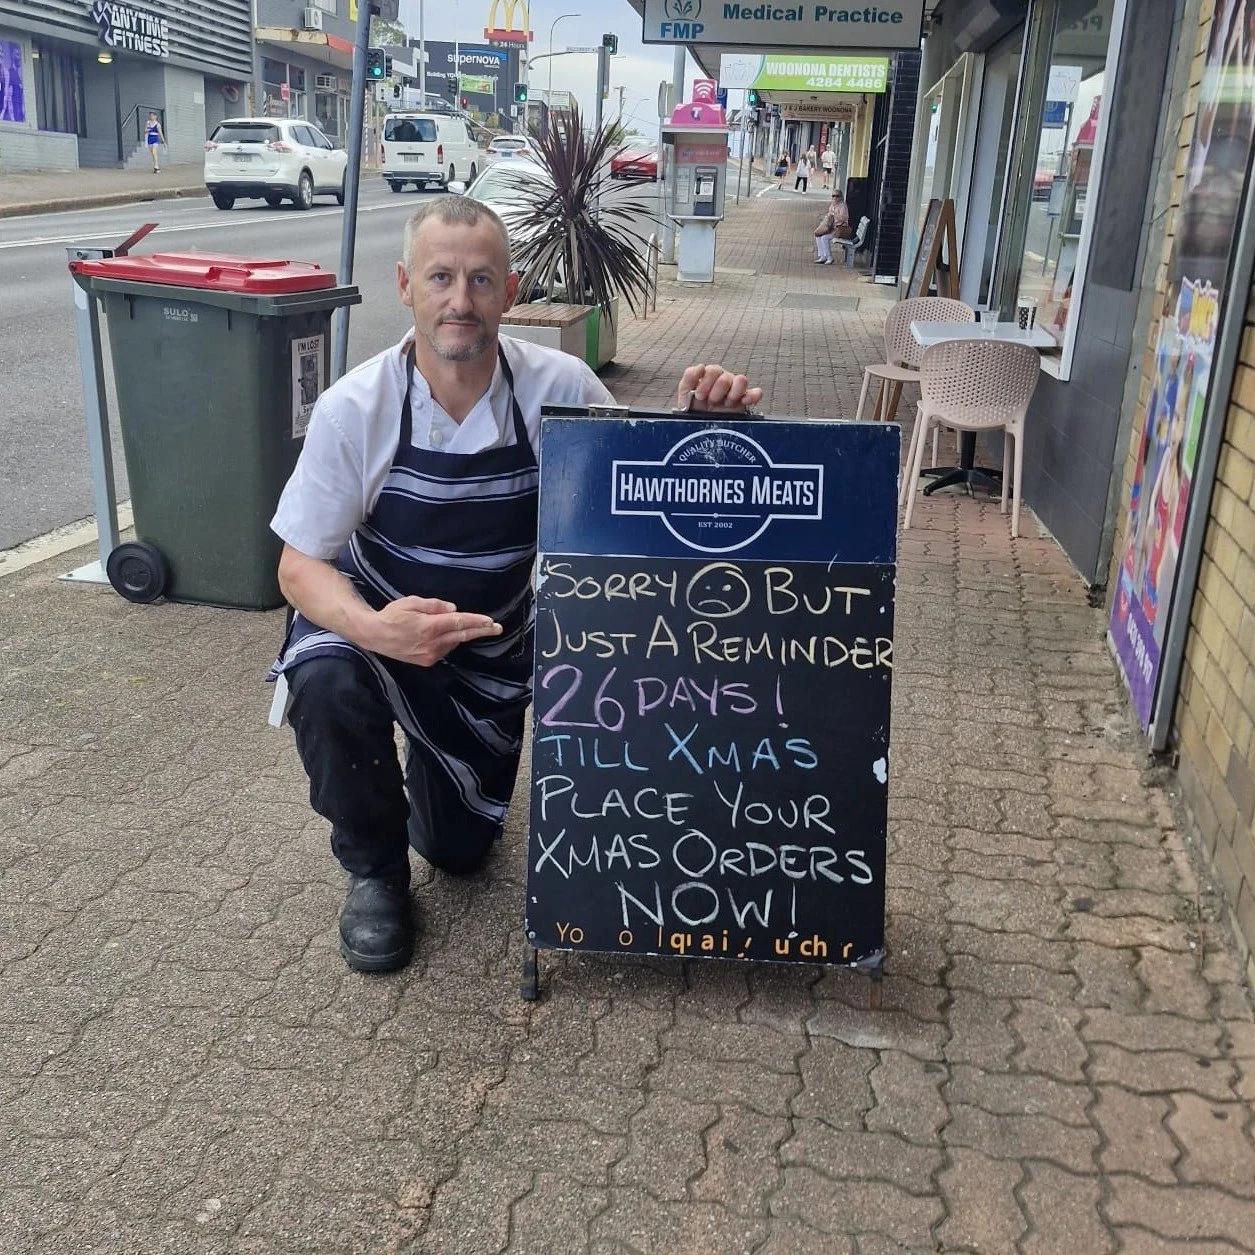 ANYTIME
FITNESS
24 Hours
SUPERNOVA
FMP
Medical Practice
WOONONA DENTISTS
4284 4486
J & J BAKERY WOONONA
T
SULO
I'M LOST
QUALITY BUTCHER
HAWTHORNES MEATS
EST 2002
SORRY BUT
JUST A REMINDER
26 DAYS!
TILL XMAS
PLACE YOUR
XMAS ORDERS
NOW!
Yo o l q ai y uch r